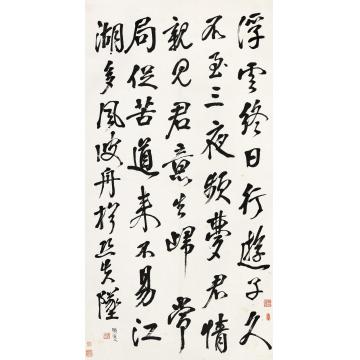 浮雲終日行遊子久
不至三夜頻夢君情
親見君意告歸常
局促苦道來不易江
湖多風波舟楫恐失墜